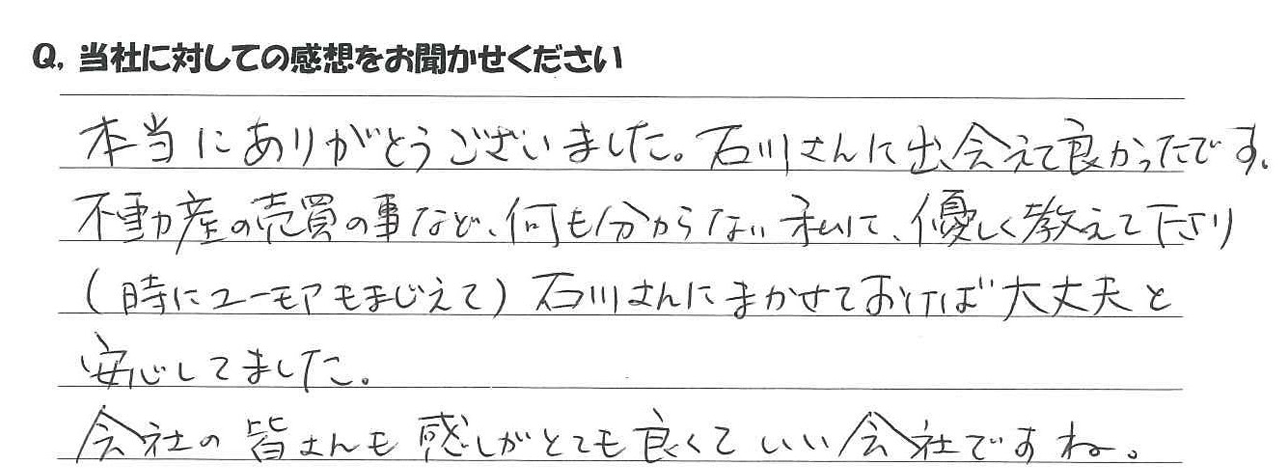 Q. 当社に対しての感想をお聞かせください
本当にありがとうございました。石川さんに出会えて良かったです。
不動産の売買の事など、何も分からない私に、優しく教えて下さり
(時にユーモアもまじえて)石川さんにまかせておけば大丈夫と
安心してました。
会社の皆さんも感じがとても良くていい会社ですね。